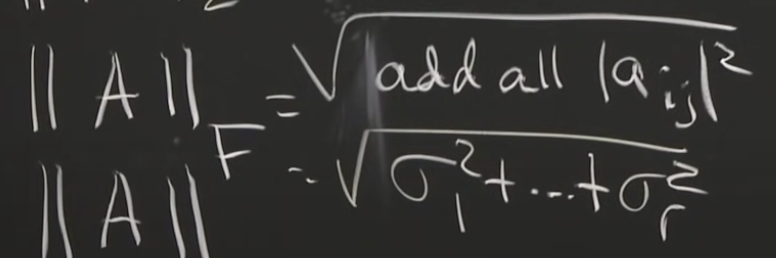 ||A||_F = √(add all |a_ij|²)
= √(σ₁² + ... + σ_r²)
||A||